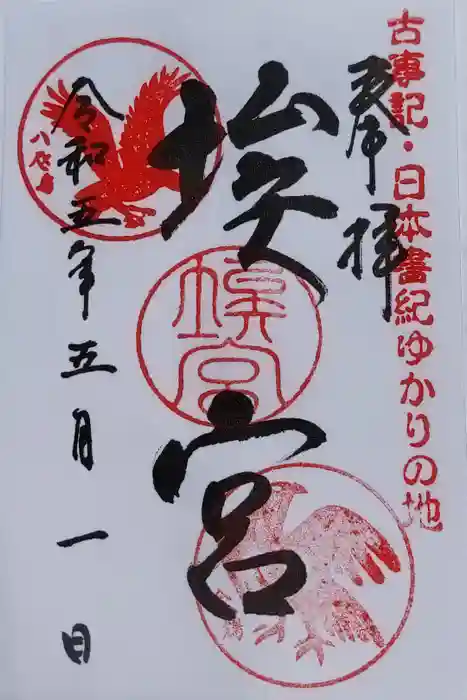 古事記・日本書紀ゆかりの地
奉拝
埃宮
埃宮
令和五年五月一日
八咫烏